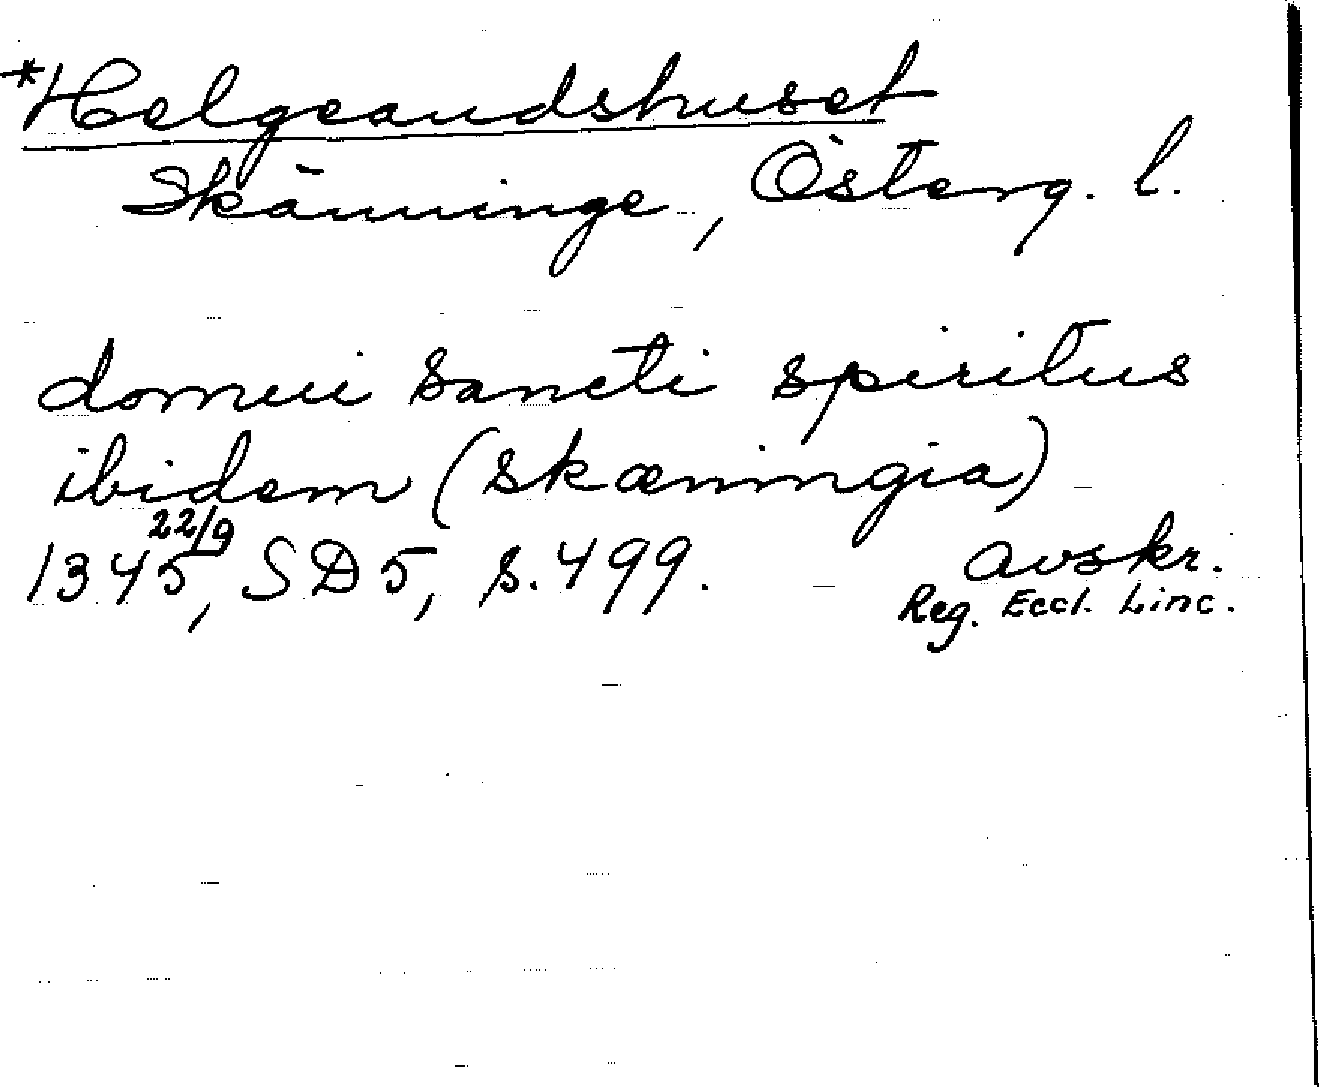 *Helgeandshuset
Skänninge, Österg. l.
domui sancti spiritus
ibidem (skæningia)
22/9
1345, SD 5, s. 499. avskr.
Reg. Eccl. Linc.